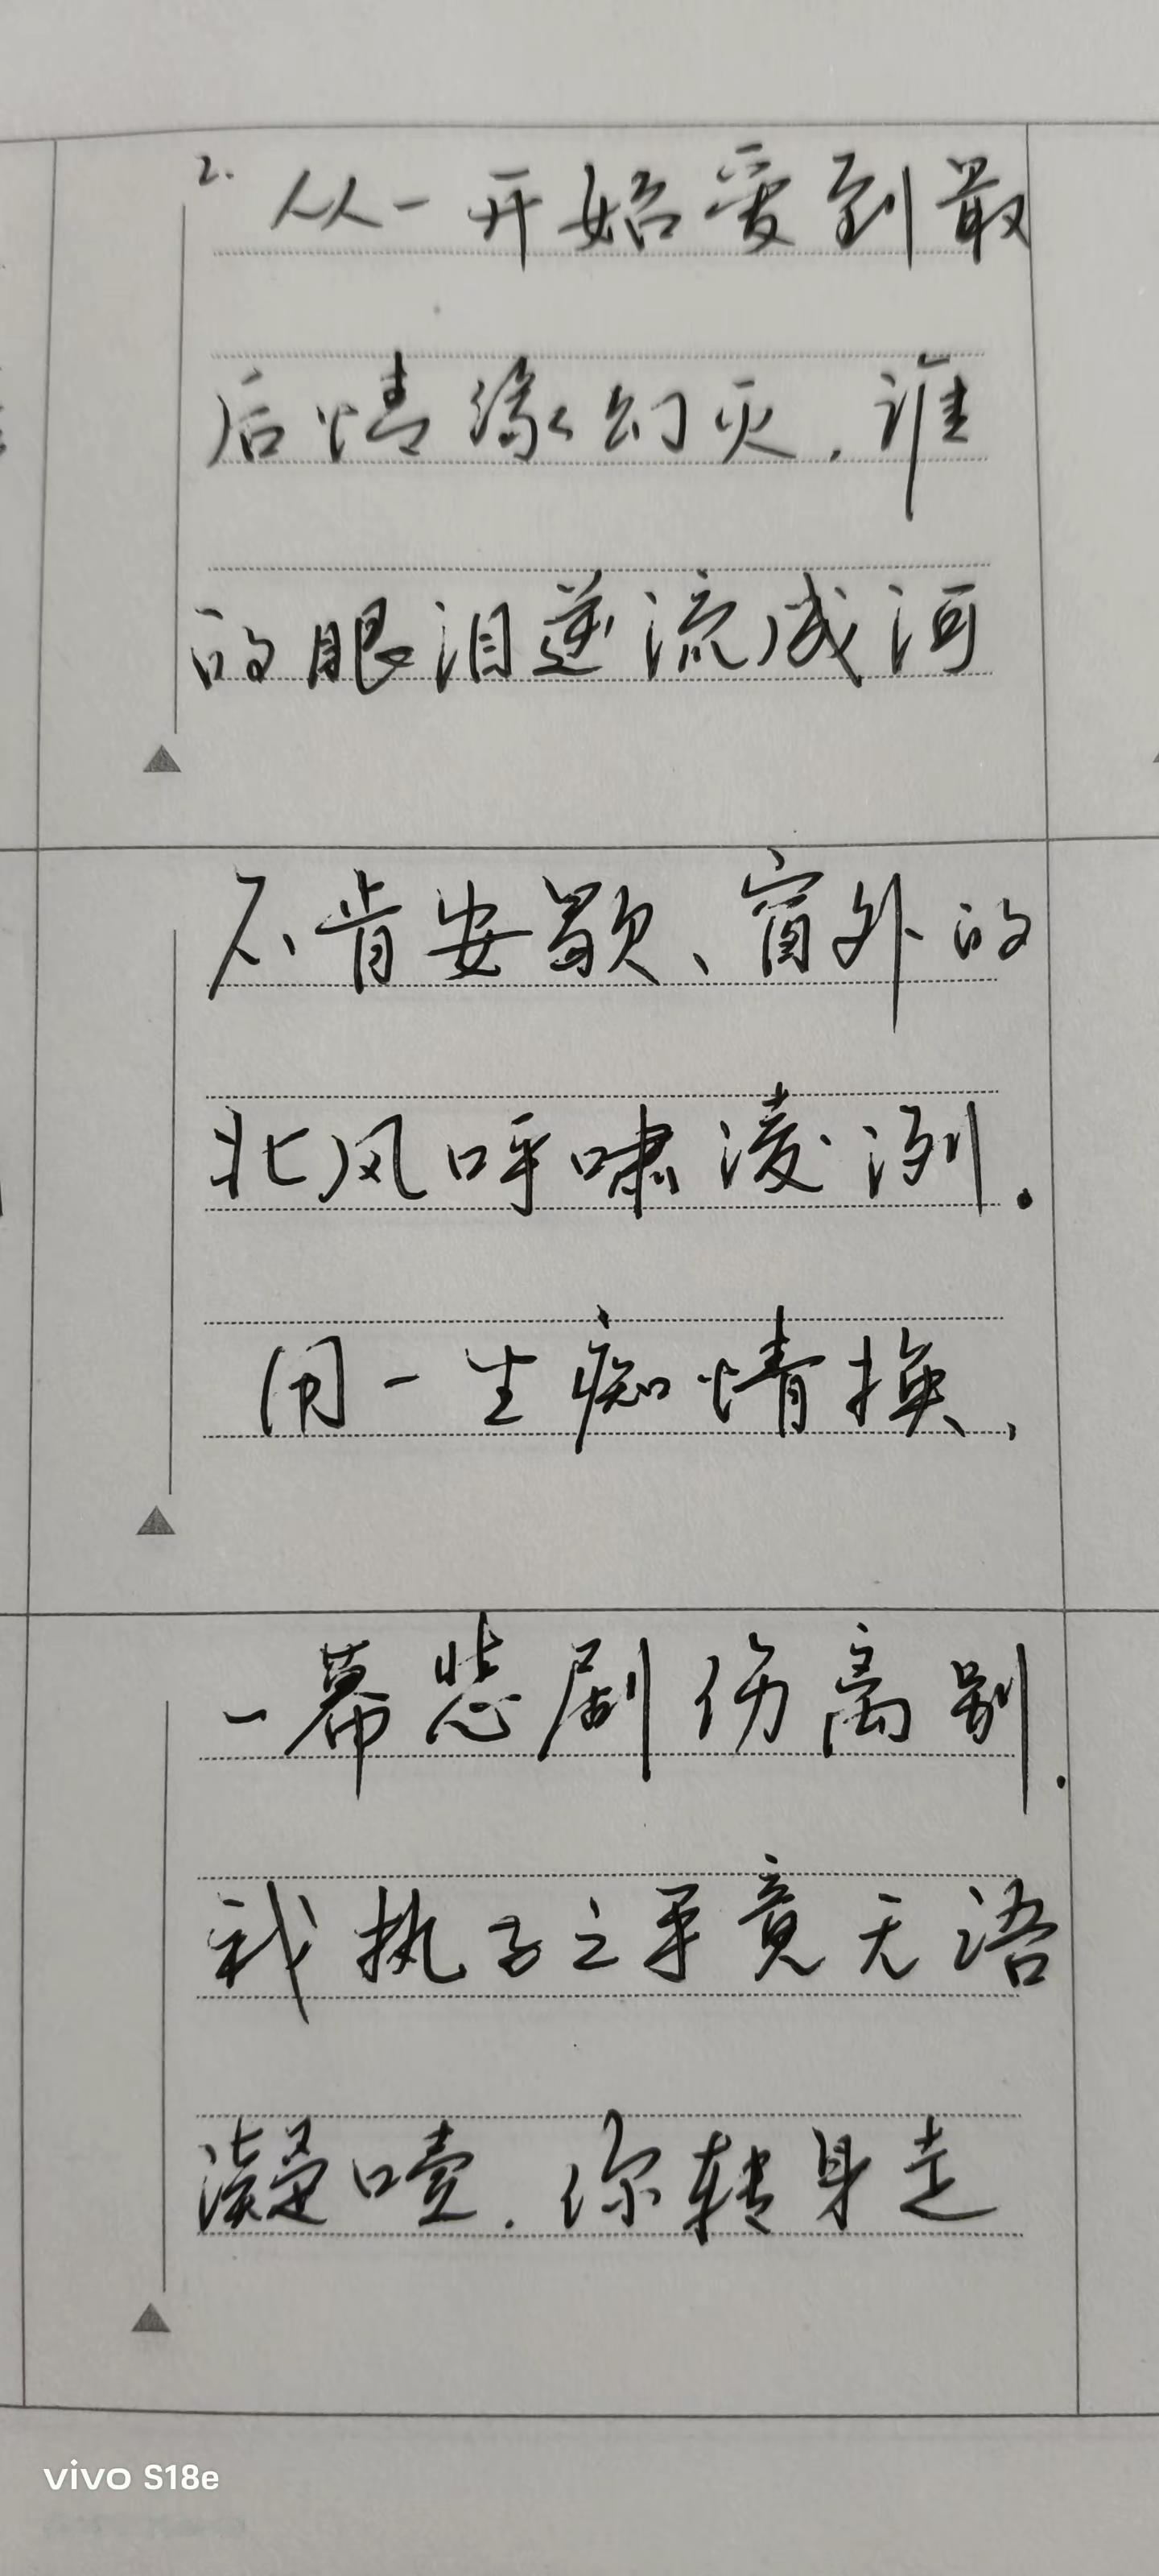 2. 从一开始爱到最
后情缘幻灭,谁
的眼泪逆流成河
不肯安歇、窗外的
北风呼啸凌冽.
用一生痴情换、
一幕悲剧伤离别.
我执子之手竟无语
凝噎.你转身走
vivo S18e